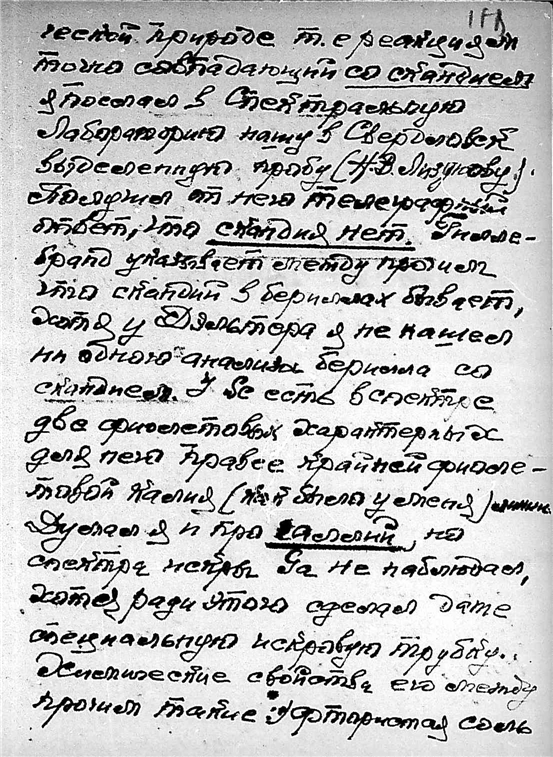 ческой природе т.е реакциям
точно совпадающий со скандием
я послал в Спектральную
Лабораторию нашу в Свердловск
выделенную пробу (Н.В. Лизунову).
Получил от него телеграфный
ответ, что скандия нет. Гилле-
бранд указывает между прочим
что скандий в бериллах бывает,
хотя у Дэльтера я не нашел
ни одного анализа берилла со
скандием. У Sc есть в спектре
две фиолетовых характерных
для него правее крайней фиоле-
товой калия (как было у меня) линии.
Думал я и про галлий, но
спектра искры Ga не наблюдал,
хотя ради этого сделал даже
специальную искровую трубку.
Химические свойства его между
прочим такие: фтористая соль